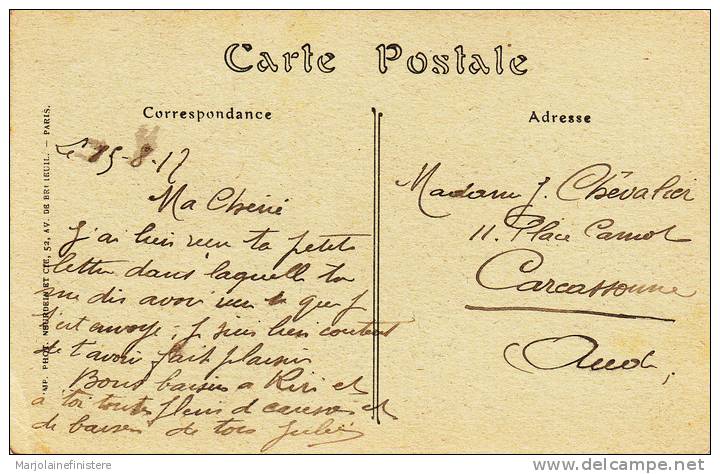 Carte Postale
Correspondance
Adresse
Le 15-8-17
Ma Chérie
J'ai bien reçu ta petite
lettre dans laquelle tu
me dis avoir reçu ce que je
t'ai envoyé; je suis bien content
de t'avoir fait plaisir
Bons baisers a Kiri et
à toi toutes fleurs de caresses et
de baisers de ton Jules
Madame J. Chévalier
11. Place Carnot
Carcassonne
(Aude)
IMP. PHOT. NEURDEIN ET CIE, 52, AV. DE BRETEUIL. — PARIS.
Marjolainefinistere
delcampe.net